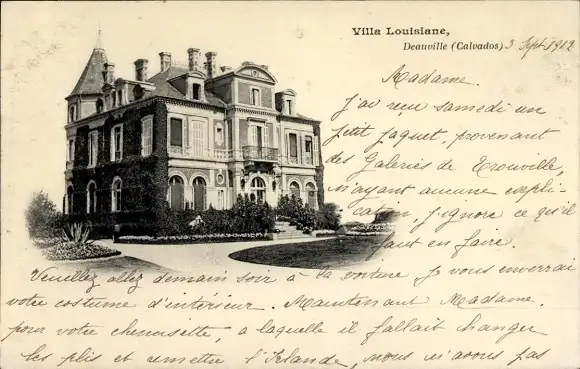 Villa Louisiane,
Deauville (Calvados) 3 Sept 1912
Madame.
J'ai reçu samedi un
petit paquet, provenant
des Galeries de Trouville,
n'ayant aucune expli-
cation, j'ignore ce qu'il
faut en faire.
Veuillez allez demain soir à la voiture je vous enverrai
votre costume d'intérieur. Maintenant Madame.
pour votre chemisette, a laquelle il fallait changer
les plis et remettre l'Irlande, nous n'avons pas